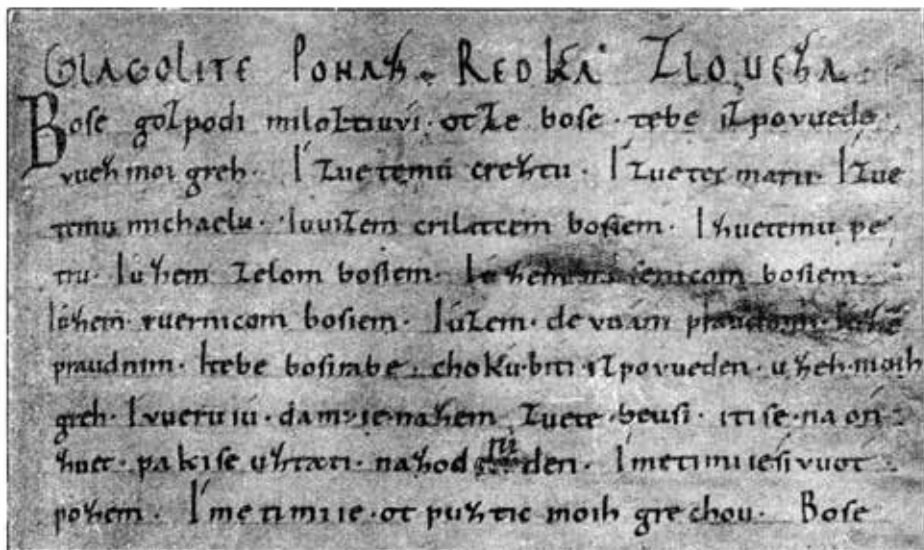 GLAGOLITE PONAZ. REDKA ZLOUEZA.
Boſe gozpodi miloztiuvi. otze boſe. tebe izpovuede.
vuez moi greh. I zuetemu creztu. I zuetei marii. I zue
temu michaelu. Iuuizem crilatcem boſiem. I zuetemu pe
tru. Iuzem zelom boſiem. Iuzem boſiem.
Iuzem. vuernicom boſiem. Iuzem. devuam praudnim. Iuzē
praudnim. Itebe boſirabe. chokú. biti. izpovueden. uzeh. moih
greh. I vueruiú. dami. ie. nazem zuete. beuſi. iti ſe. na oń
zuet. pakiſe uztati. nazodni den. Imetimi ie ſivuot
pozem. Imetimi ie. ot puztic moih grechou. Boſe